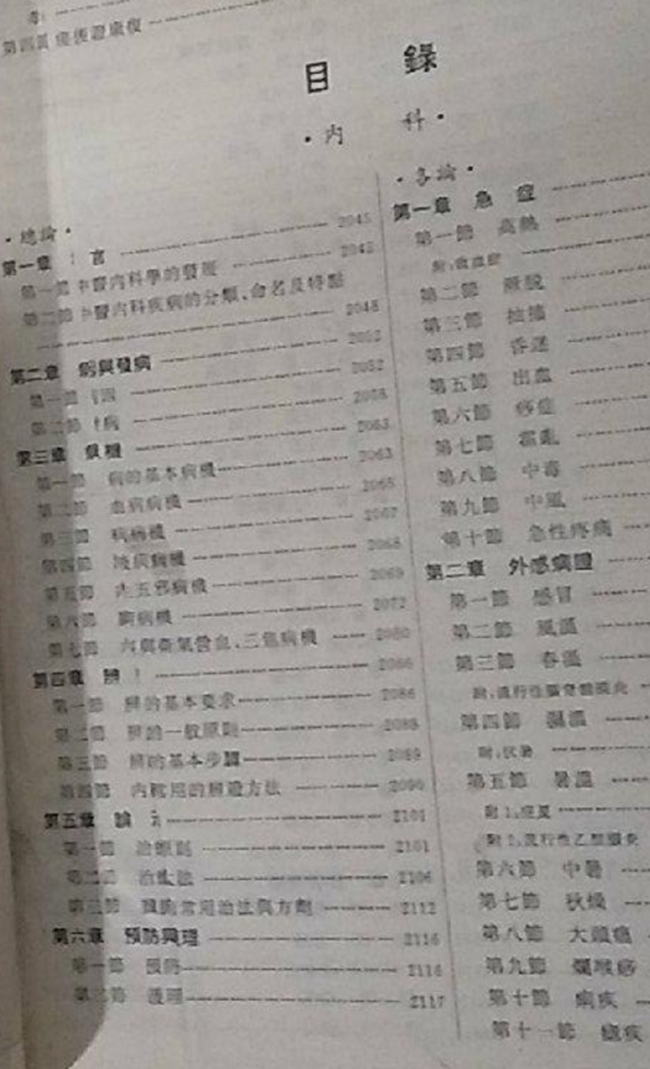 目　錄
·內　科·
·總論·
第一章　言 2045
第一節 中醫內科學的發展 2045
第二節 中醫內科疾病的分類、命名及特點
2048
第二章 與發病 2052
第一節 2052
第二節 病 2058
第三章 機 2063
第一節 病的基本病機 2063
第二節 血病病機 2065
第三節 病病機 2067
第四節 病機 2068
第五節 五邪病機 2069
第六節 病機 2072
第七節 六與衛氣營血、三焦病機 2080
第四章 2086
第一節 的基本要求 2086
第二節 的一般原則 2088
第三節 的基本步驟 2089
第四節 內常用的辨證方法 2090
第五章 論 2101
第一節 治則 2101
第二節 治法 2106
第三節 常用治法與方劑 2112
第六章 預防與護理 2116
第一節 預防 2116
第二節 護理 2117
·各論·
第一章 急　症
第一節 高熱
第二節 厥脫
第三節 抽搐
第四節 昏迷
第五節 出血
第六節 痧症
第七節 霍亂
第八節 中毒
第九節 中風
第十節 急性疼痛
第二章 外感病證
第一節 感冒
第二節 風溫
第三節 春溫
附：流行性腦脊髓膜炎
第四節 濕溫
附：伏暑
第五節 暑溫
附1：疰夏
附2：流行性乙型腦炎
第六節 中暑
第七節 秋燥
第八節 大頭瘟
第九節 爛喉痧
第十節 痢疾
第十一節 瘧疾